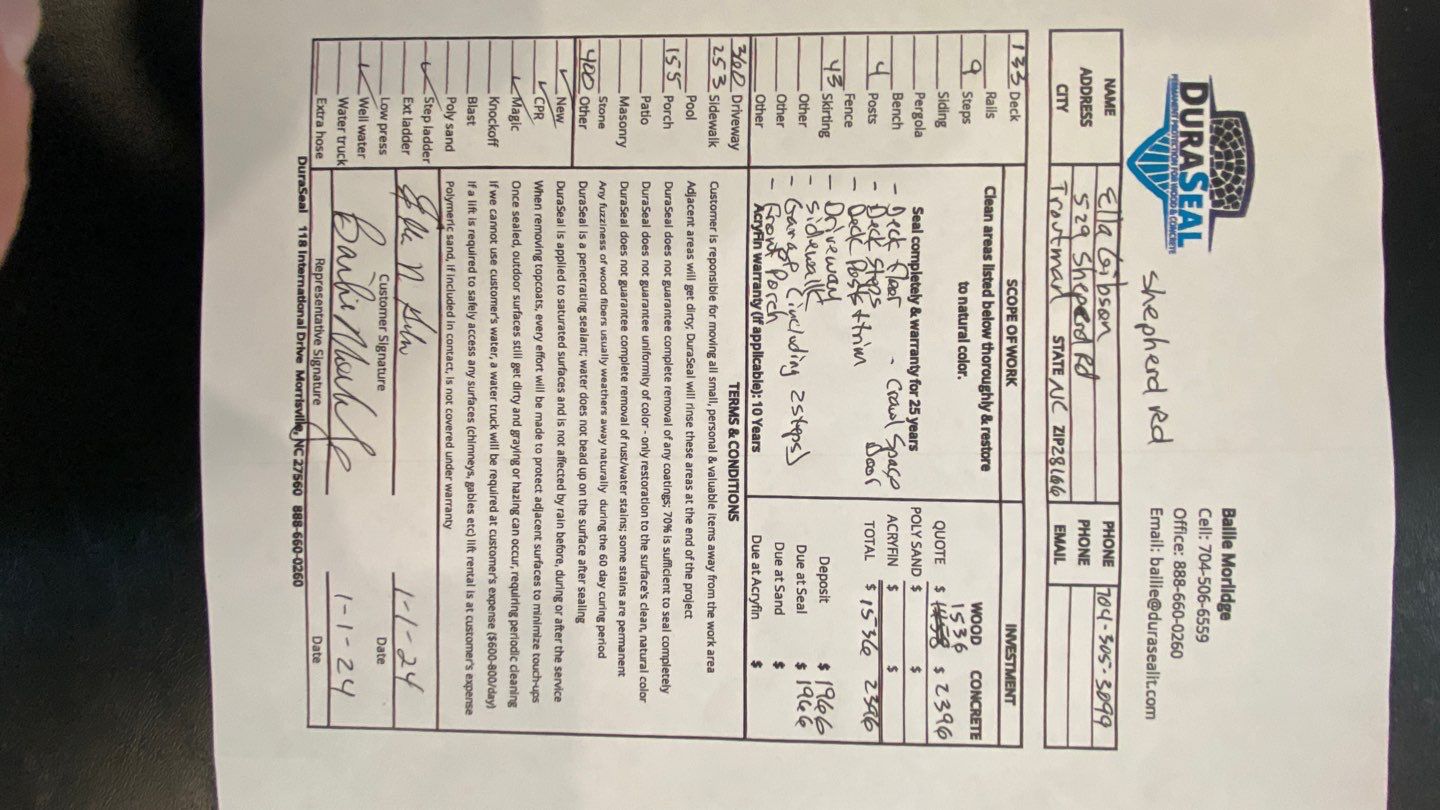 DURASEAL
PERMANENT PROTECTION FOR WOOD & CONCRETE
Shepherd Rd
Bailie Morlidge
Cell: 704-506-6559
Office: 888-660-0260
Email: bailie@durasealit.com
NAME Ella Gibson PHONE 704-305-3099
ADDRESS 529 Sheperd Rd PHONE
CITY Troutman STATE NC ZIP 28166 EMAIL
SCOPE OF WORK
INVESTMENT
133 Deck
Rails
9 Steps
Siding
Pergola
Bench
4 Posts
Fence
43 Skirting
Other
Other
Other
Clean areas listed below thoroughly & restore
to natural color.
Seal completely & warranty for 25 years
- Deck floor - Crawl Space
- Deck Steps Door
- Deck Posts + trim
- Driveway
- Sidewalk
- Garage (including 2 steps)
- Front Porch
Acryfin warranty (if applicable): 10 Years
WOOD CONCRETE
1536
QUOTE $ 1458 $ 2396
POLY SAND $ $
ACRYFIN $ $
TOTAL $ 1536 2396
Deposit $ 1966
Due at Seal $ 1966
Due at Sand $
Due at Acryfin $
360 Driveway
253 Sidewalk
Pool
155 Porch
Patio
Masonry
Stone
400 Other
New
CPR
Magic
Knockoff
Blast
Poly sand
Step ladder
Ext ladder
Low press
Well water
Water truck
Extra hose
TERMS & CONDITIONS
Customer is reponsible for moving all small, personal & valuable items away from the work area
Adjacent areas will get dirty; DuraSeal will rinse these areas at the end of the project
DuraSeal does not guarantee complete removal of any coatings; 70% is sufficient to seal completely
DuraSeal does not guarantee uniformity of color - only restoration to the surface's clean, natural color
DuraSeal does not guarantee complete removal of rust/water stains; some stains are permanent
Any fuzziness of wood fibers usually weathers away naturally during the 60 day curing period
DuraSeal is a penetrating sealant; water does not bead up on the surface after sealing
DuraSeal is applied to saturated surfaces and is not affected by rain before, during or after the service
When removing topcoats, every effort will be made to protect adjacent surfaces to minimize touch-ups
Once sealed, outdoor surfaces still get dirty and graying or hazing can occur, requiring periodic cleaning
If we cannot use customer's water, a water truck will be required at customer's expense ($600-800/day)
If a lift is required to safely access any surfaces (chimneys, gables etc) lift rental is at customer's expense
Polymeric sand, if included in contact, is not covered under warranty
1-1-24
Customer Signature Date
1-1-24
Representative Signature Date
DuraSeal 118 International Drive Morrisville, NC 27560 888-660-0260